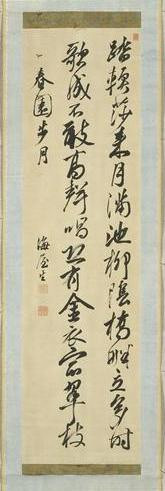 踏輭莎来月滿池柳陰橋畔立多時
歌成不敢高聲唱恐有金衣宿翠枝
春園步月
海屋生